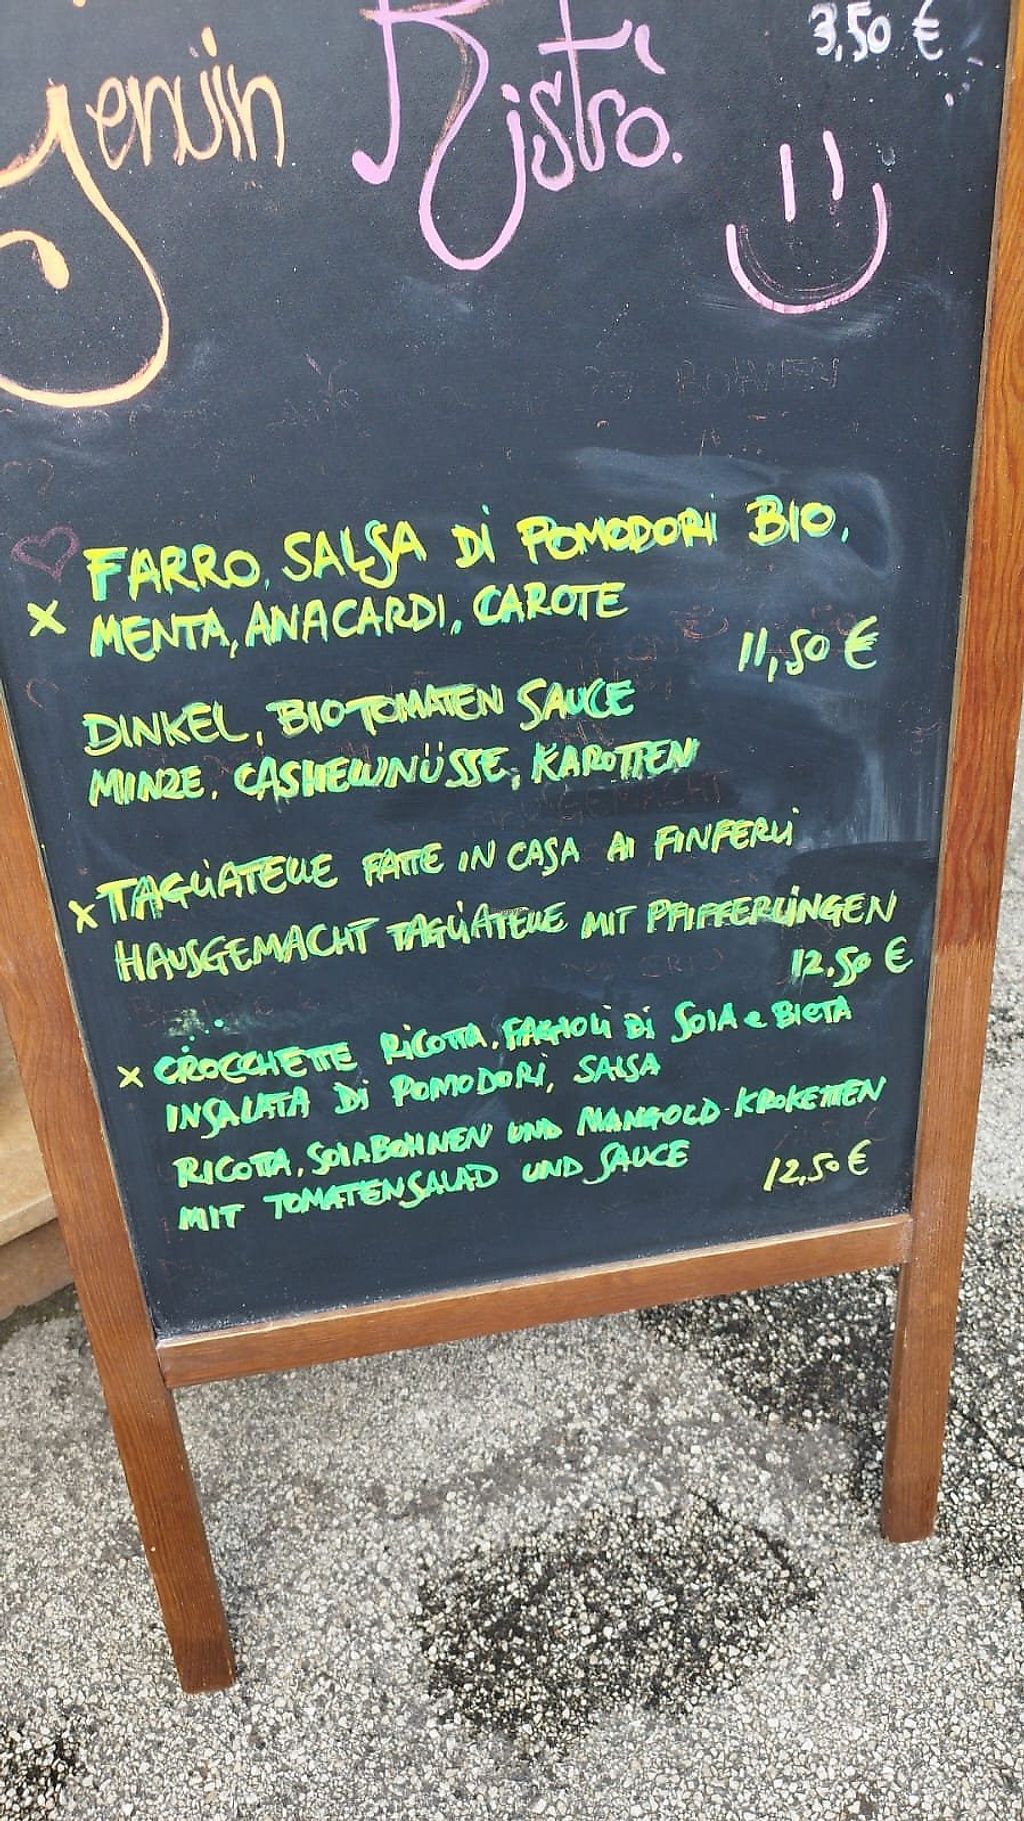 3,50 €
genuin Bistrò.
FARRO, SALSA DI POMODORI BIO,
x MENTA, ANACARDI, CAROTE
11,50 €
DINKEL, BIOTOMATEN SAUCE
MINZE, CASHEWNÜSSE, KAROTTEN
x TAGLIATELLE FATTE IN CASA AI FINFERLI
HAUSGEMACHT TAGLIATELLE MIT PFIFFERLINGEN
12.50 €
x CROCCHETTE RICOTTA, FAGIOLI DI SOIA e BIETA
INSALATA DI POMODORI, SALSA
RICOTTA, SOIABOHNEN UND MANGOLD-KROKETTEN
MIT TOMATENSALAD UND SAUCE
12,50 €